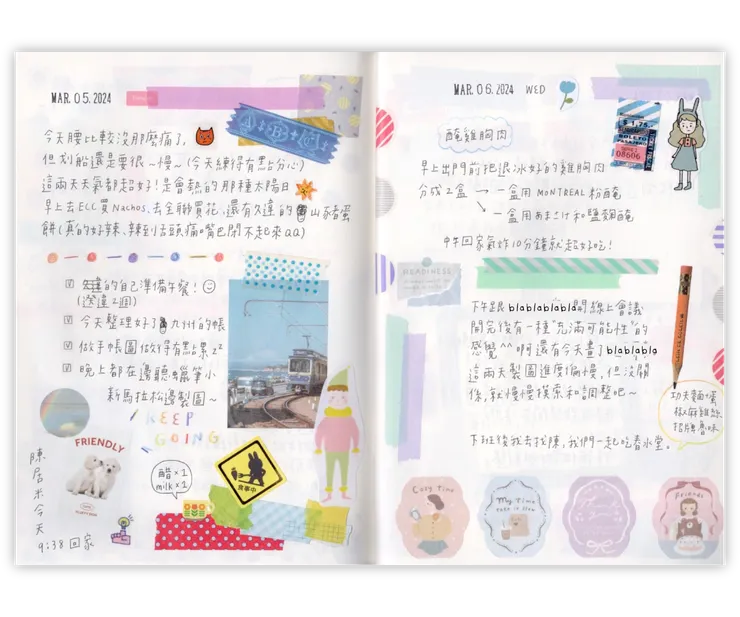 MAR. 05. 2024
今天腰比較沒那麼痛了,
但划船還是要很~慢~(今天練得有點分心)
這兩天天氣都超好!是會熱的那種太陽日
早上去ECC買Nachos、去全聯買花,還有久違的山豬蛋
餅(真的好辣、辣到舌頭痛嘴巴閉不起來QQ)
久違的自己準備午餐!
今天整理好了九州的帳
做手帳圖做得有點累
晚上都在邊聽蠟筆小
新馬拉松邊製圖~
KEEP
GOING
FRIENDLY
醋×1
milk×1
食事中
陳居米今天
9:38回家
MAR. 06. 2024 WED
醃雞胸肉
$1.75
08606
早上出門前把退冰好的雞胸肉
分成2盒 → 一盒用MONTREAL粉醃
↘ 一盒用あまさけ和鹽麴醃
中午回家氣炸10分鐘就超好吃!
HEADINESS
下午跟blablablabla開線上會議
開完後有一種"充滿可能性"的
感覺^^啊還有今天畫了blablabla
這兩天製圖進度偏慢,但沒關
係,就慢慢摸索和調整吧~
功夫麵+蛋
椒麻雞絲
招牌魯味
下班後我去找陳,我們一起吃春水堂。
Cozy time
My time
take it slow
Friends